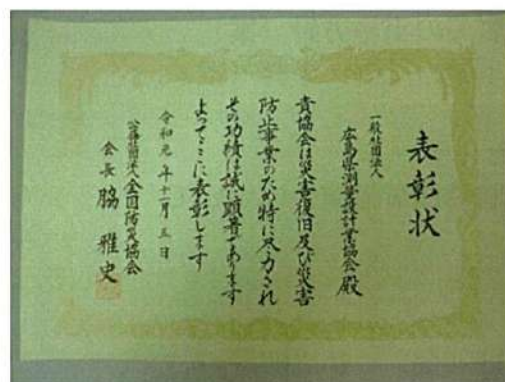 表彰状
一般社団法人
広島県測量設計業協会殿
貴協会は災害復旧及び災害
防止事業のため特に尽力され
その功績は誠に顕著であります
よってここに表彰します
令和元年十一月五日
公益社団法人全国防災協会
会長 脇雅史